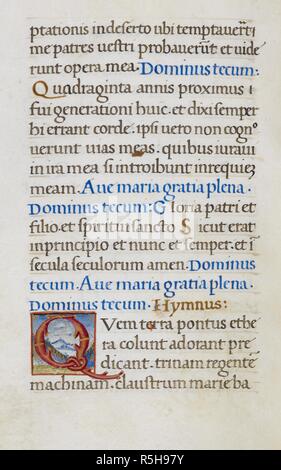 ptationis in deserto ubi temptaverũt
me patres vestri probaverũt et vide
runt opera mea. Dominus tecum.
Quadraginta annis proximus
fui generationi huic. et dixi semper
hi errant corde. ipsi vero non cogno
verunt vias meas. quibus iuravi
in ira mea si introibunt in requiẽ
meam. Ave maria gratia plena.
Dominus tecum. Gloria patri et
filio. et spiritui sancto Sicut erat
in principio et nunc et semper. et i
secula seculorum amen. Dominus
tecum. Ave maria gratia plena.
Dominus tecum. Hymnus:
QVem terra pontus ethe
ra colunt adorant pre
dicant. trinam regentẽ
machinam. claustrum marie ba
alamy
Image ID: R5H97Y
www.alamy.com